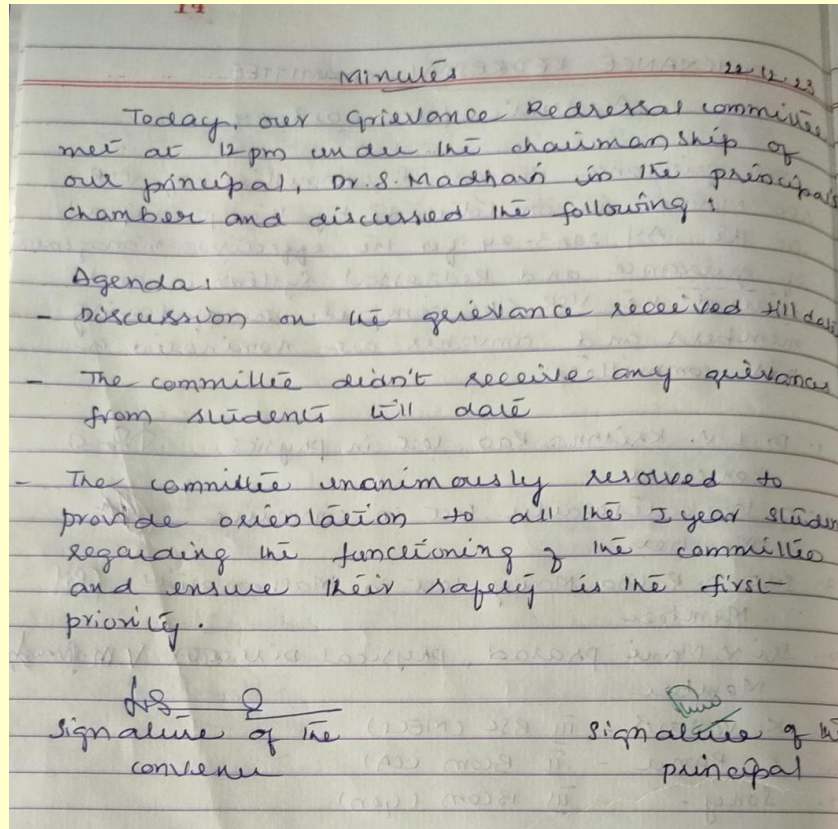 14
Minutes
22.12.23
Today, our Grievance Redressal committee
met at 12pm under the chairmanship of
our principal, Dr. S. Madhavi in the principal's
chamber and discussed the following:
Agenda:
- Discussion on the grievance received till date
- The committee didn't receive any grievances
from students till date
- The committee unanimously resolved to
provide orientation to all the I year studen
regarding the functioning of the committee
and ensure their safety is the first
priority.
signature of the
convener
signature of the
principal